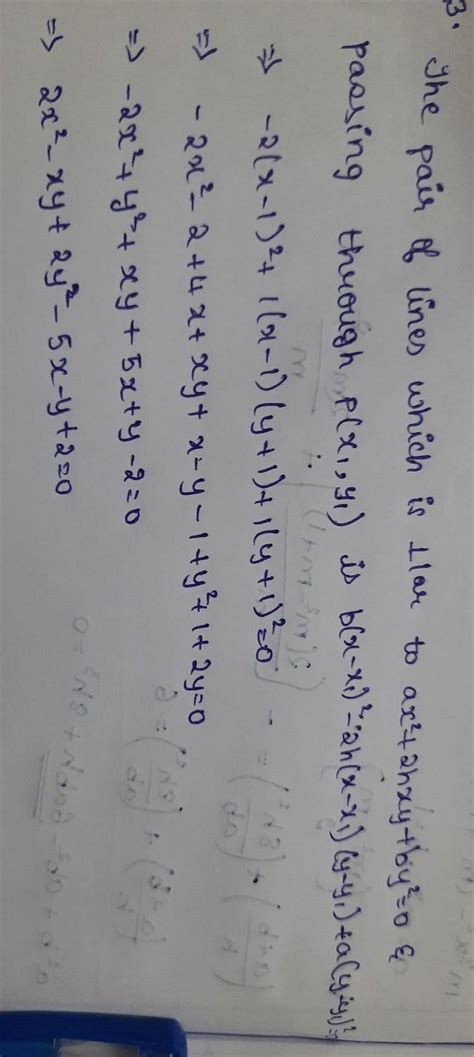 3. The pair of lines which is ⊥lar to ax²+2hxy+by²=0 &
passing through P(x₁,y₁) is b(x-x₁)²-2h(x-x₁)(y-y₁)+a(y-y₁)²=
⇒ -2(x-1)²+1(x-1)(y+1)+1(y+1)²=0
⇒ -2x²-2+4x+xy+x-y-1+y²+1+2y=0
⇒ -2x²+y²+xy+5x+y-2=0
⇒ 2x²-xy+2y²-5x-y+2=0